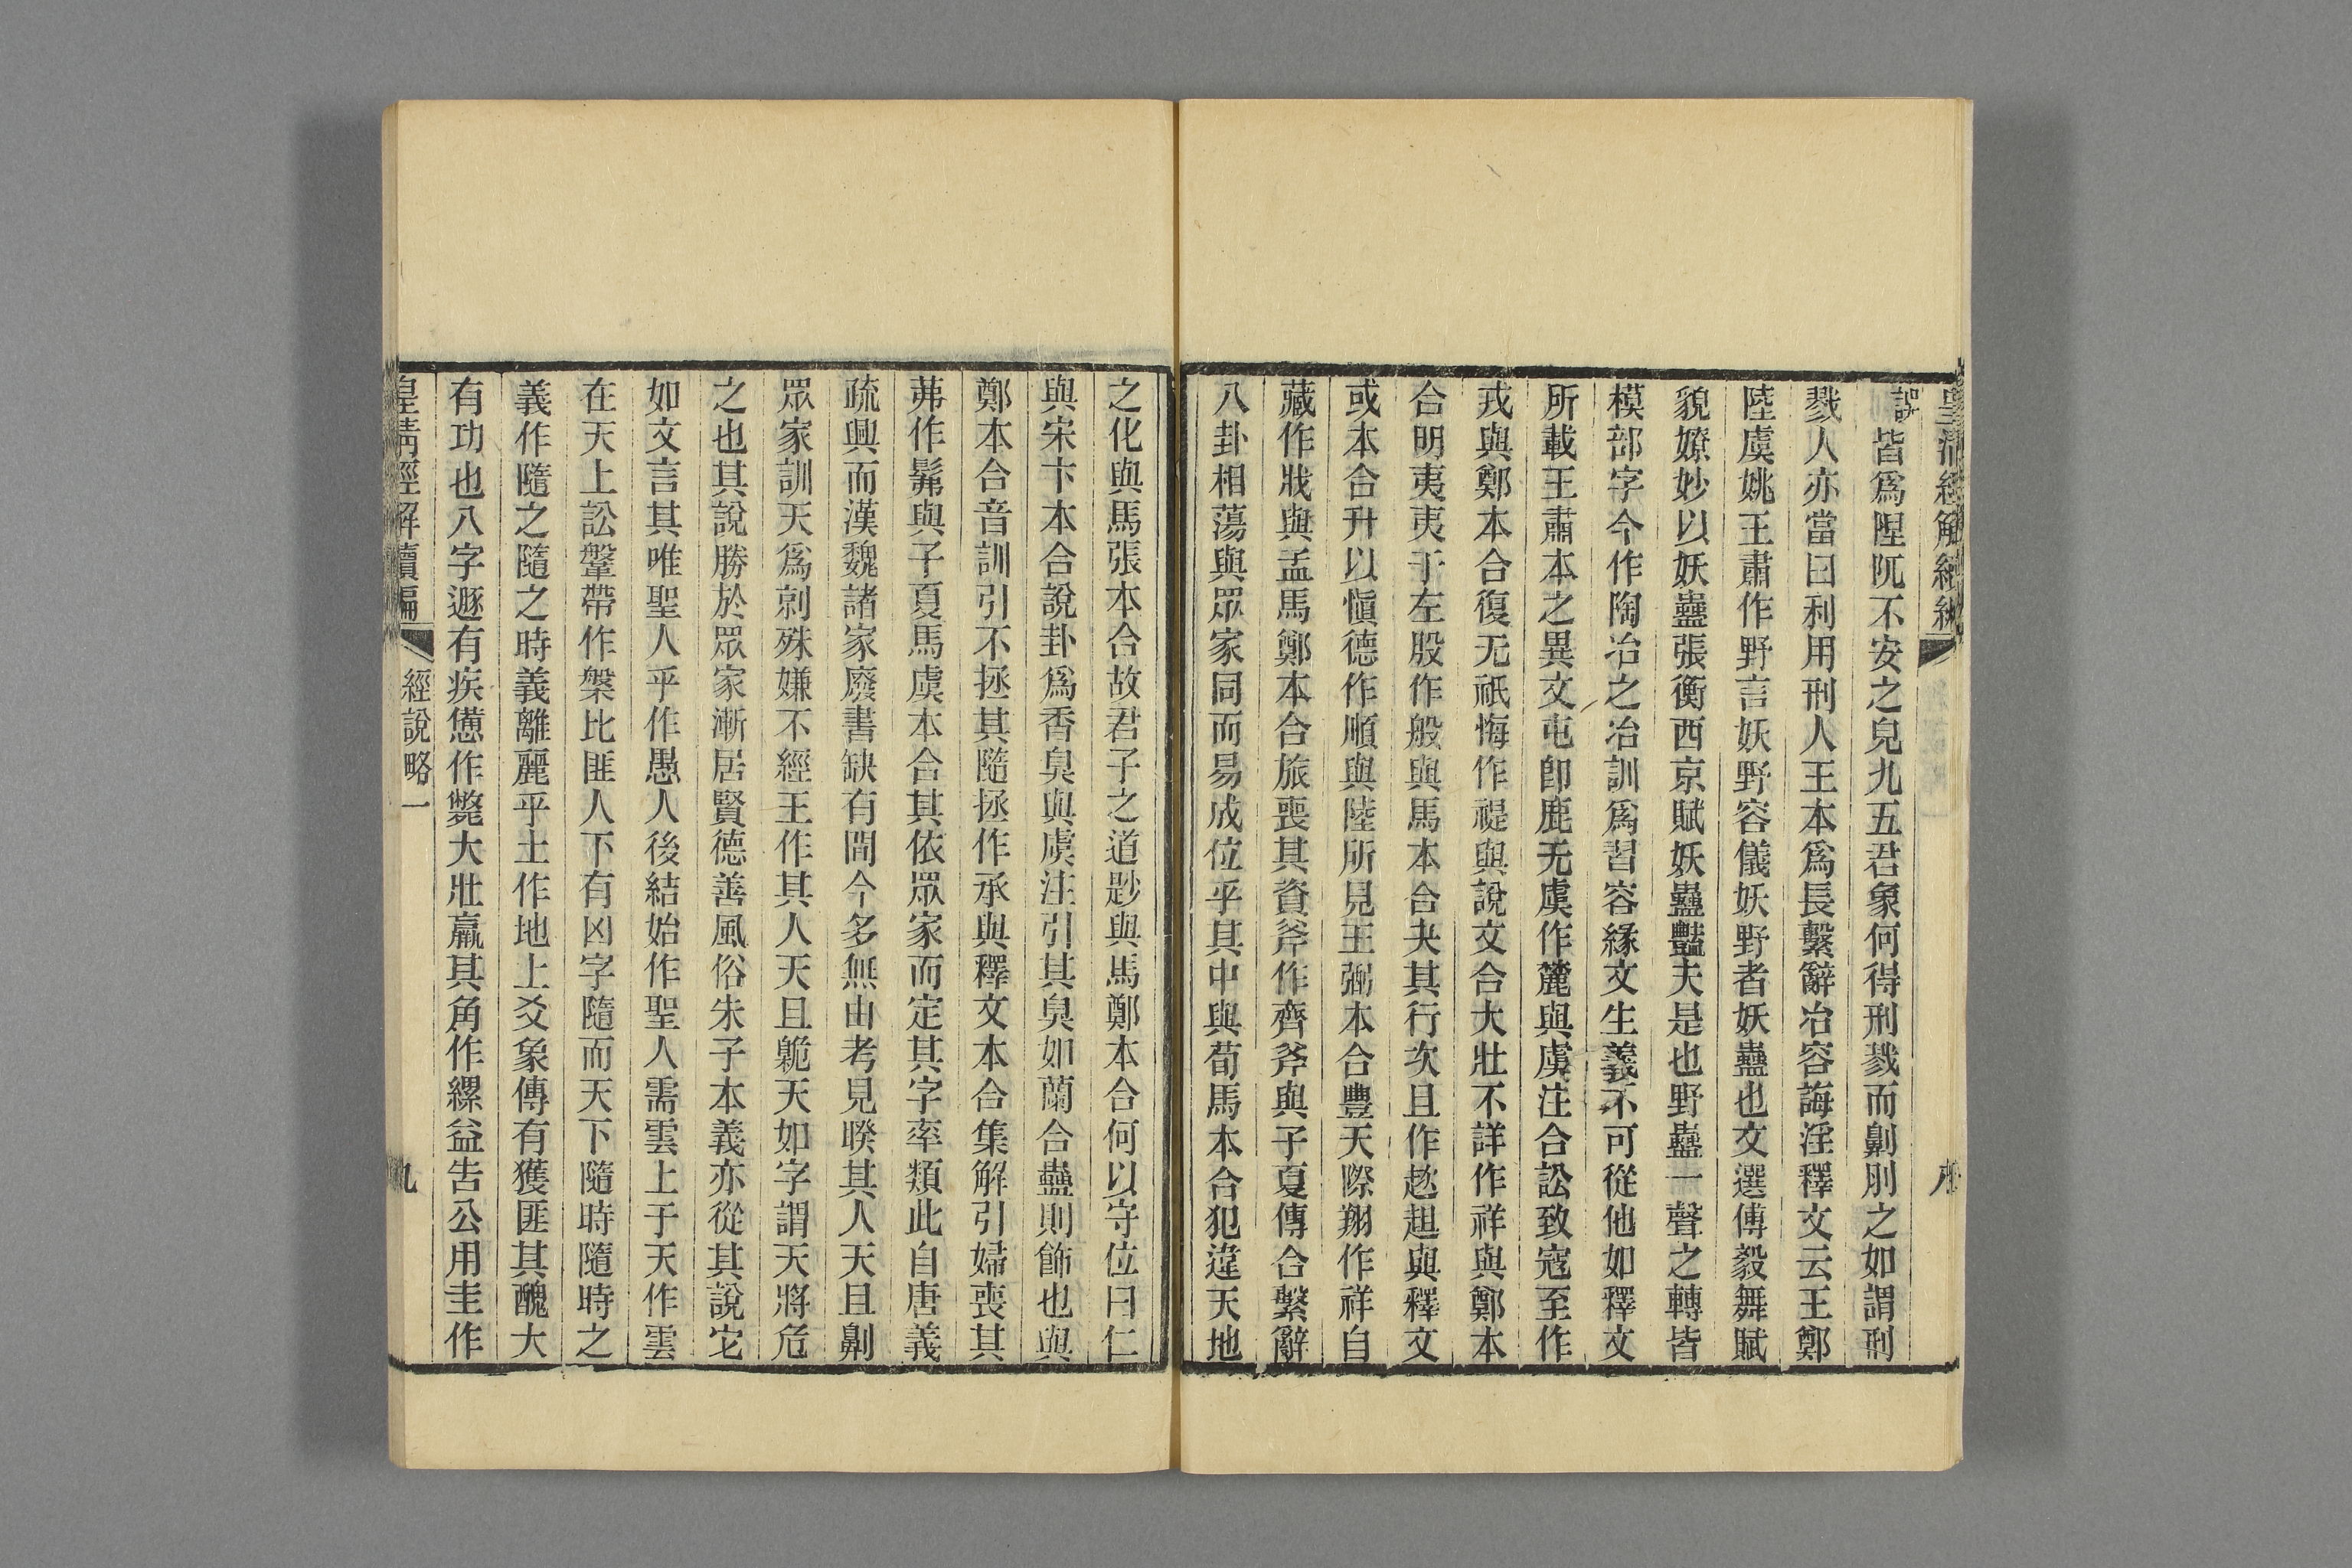 皇清經解續編
誤皆爲隉阢不安之皃九五君象何得刑戮而劓刖之如謂刑
戮人亦當曰利用刑人王本爲長繫辭冶容誨淫釋文云王鄭
陸虞姚王肅作野言妖野容儀妖野者妖蠱也文選傅毅舞賦
貌嫽妙以妖蠱張衡西京賦妖蠱豔夫是也野蠱一聲之轉皆
模部字今作陶冶之冶訓爲習容緣文生義不可從他如釋文
所載王肅本之異文屯卽鹿无虞作麓與虞注合訟致寇至作
戎與鄭本合復无祇悔作禔與說文合大壯不詳作祥與鄭本
合明夷夷于左股作般與馬本合夬其行次且作趑趄與釋文
或本合升以愼德作順與陸所見王弼本合豐天際翔作祥自
藏作戕與孟馬鄭本合旅喪其資斧作齊斧與子夏傳合繫辭
八卦相蕩與眾家同而易成位乎其中與荀馬本合犯違天地
之化與馬張本合故君子之道尟與馬鄭本合何以守位曰仁
與宋卞本合說卦爲香臭與虞注引其臭如蘭合蠱則飾也與
鄭本合音訓引不拯其隨拯作承與釋文本合集解引婦喪其
茀作髴與子夏馬虞本合其依眾家而定其字率類此自唐義
疏興而漢魏諸家廢書缺有間今多無由考見睽其人天且劓
眾家訓天爲剠殊嫌不經王作其人天且臲天如字謂天將危
之也其說勝於眾家漸居賢德善風俗朱子本義亦從其說它
如文言其唯聖人乎作愚人後結始作聖人需雲上于天作雲
在天上訟鞶帶作槃比匪人下有凶字隨而天下隨時隨時之
義作隨之隨之時義離麗乎土作地上爻象傳有獲匪其醜大
有功也八字遯有疾憊作斃大壯羸其角作縲益告公用圭作
皇清經解續編 經說略一 九